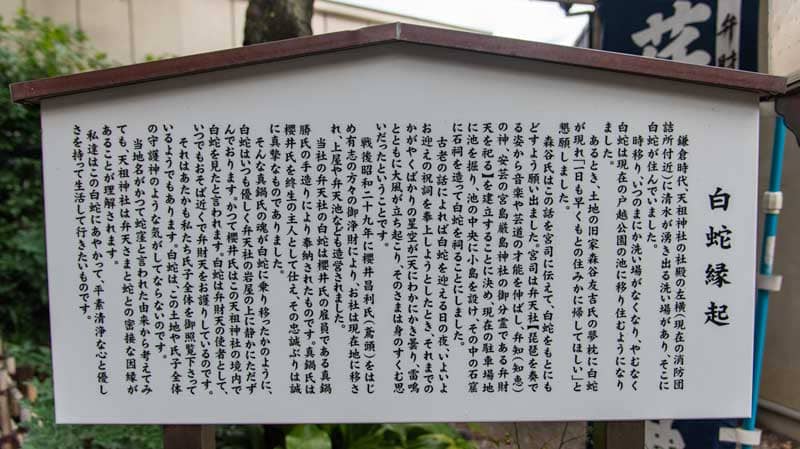 白蛇縁起
鎌倉時代、天祖神社の社殿の左横(現在の消防団
詰所付近)に清水が湧き出る洗い場があり、そこに
白蛇が住んでいました。
時移り、いつのまにか洗い場がなくなり、やむなく
白蛇は現在の戸越公園の池に移り住むようになり
ました。
あるとき、土地の旧家森谷友吉氏の夢枕に白蛇
が現れ「一日も早くもとの住みかに帰してほしい」と
懇願しました。
森谷氏はこの話を宮司に伝えて、白蛇をもとにも
どすよう願い出ました。宮司は弁天社【琵琶を奏で
る姿から音楽や芸道の才能を伸ばし、弁知(知恵)
の神、安芸の宮島厳島神社の御分霊である弁財
天を祀る】を建立することに決め、現在の駐車場地
に池を掘り、池の中央に小島を設け、その中の石窟
に石祠を造って白蛇を祀ることにしました。
古老の話によれば白蛇を迎える日の夜、いよいよ
お迎えの祝詞を奉上しようとしたとき、それまでの
かがやくばかりの星空が一天にわかにかき曇り、雷鳴
とともに大風が立ち起こり、そのさまは身のすくむ思
いだったということです。
戦後昭和二十九年に櫻井昌利氏(鳶頭)をはじ
め有志の方々の御浄財により、お社は現在地に移さ
れ、上屋や弁天池なども造営されました。
当社の弁天社の白蛇は櫻井氏の雇用である真鍋
勝氏の手造りにより奉納されたものです。真鍋氏は
櫻井氏を終生の主人として仕え、その忠誠ぶりは誠
に真摯なものでありました。
そんな真鍋氏の魂が白蛇に乗り移ったかのように、
白蛇はいつも優しく弁天社の岩屋の上に静かにたたず
んでおります。かつて櫻井氏はこの天祖神社の境内で
白蛇を見たと言われます。白蛇は弁財天の使者として、
いつでもおそば近くで弁財天をお護りしているのです。
それはあたかも私たち氏子全体を御照覧下さって
いるようでもあります。白蛇は、この土地や氏子全体
の守護神のような気がしてならないのです。
当地名がかつて蛇窪と言われた由来から考えてみ
ても、天祖神社は弁天さまと蛇との密接な因縁が
あることが理解されます。
私達はこの白蛇にあやかって、平素清浄な心と優し
さを持って生活して行きたいものです。
弁財